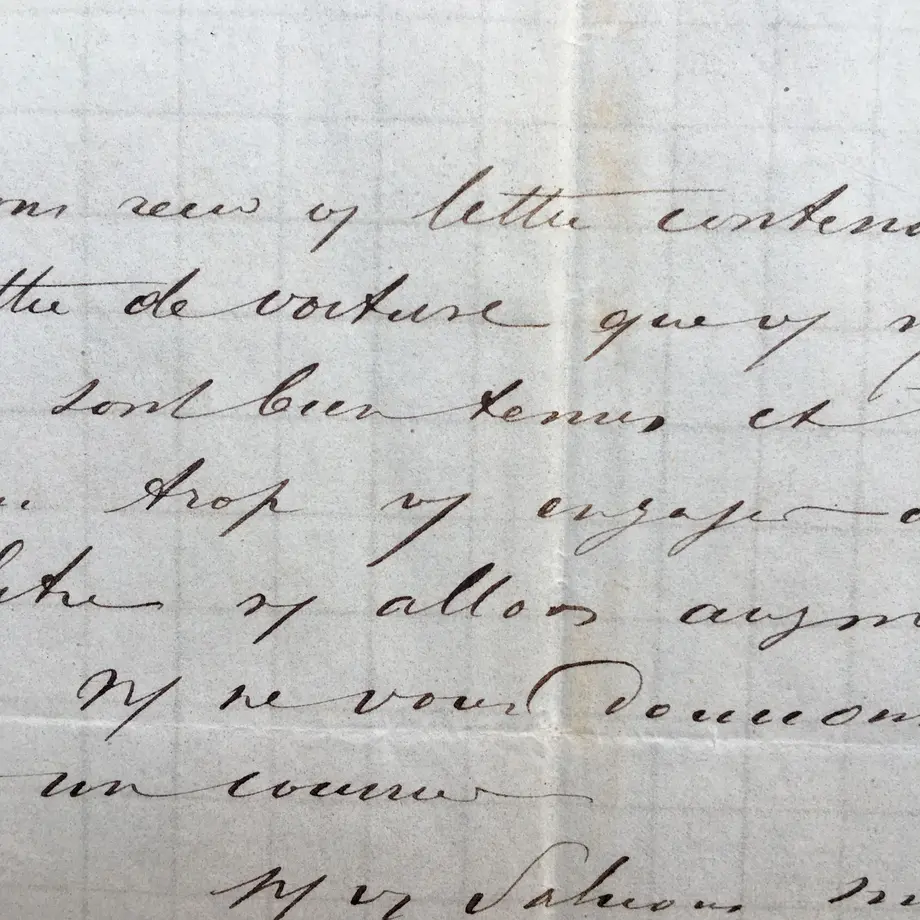 ons recu vs lettre conten
ttre de voiture que vs n
sont bien tenus et
trop vs engager
ns allons augm
Ns ne vous donnons
un courrier
Ns vs Saluons